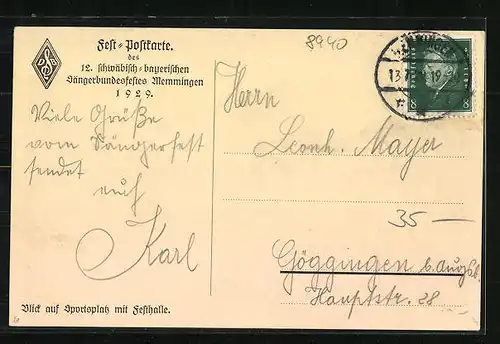 8940
Fest-Postkarte.
des
12. schwäbisch-bayerischen
Sängerbundesfestes Memmingen
1929.
Viele Grüße
vom Sängerfest
sendet
euch
Karl
Blick auf Sportsplatz mit Festhalle.
8 8
Herrn
Leonh. Mayer
35 —
Göggingen b. Augsb.
Hauptstr. 28